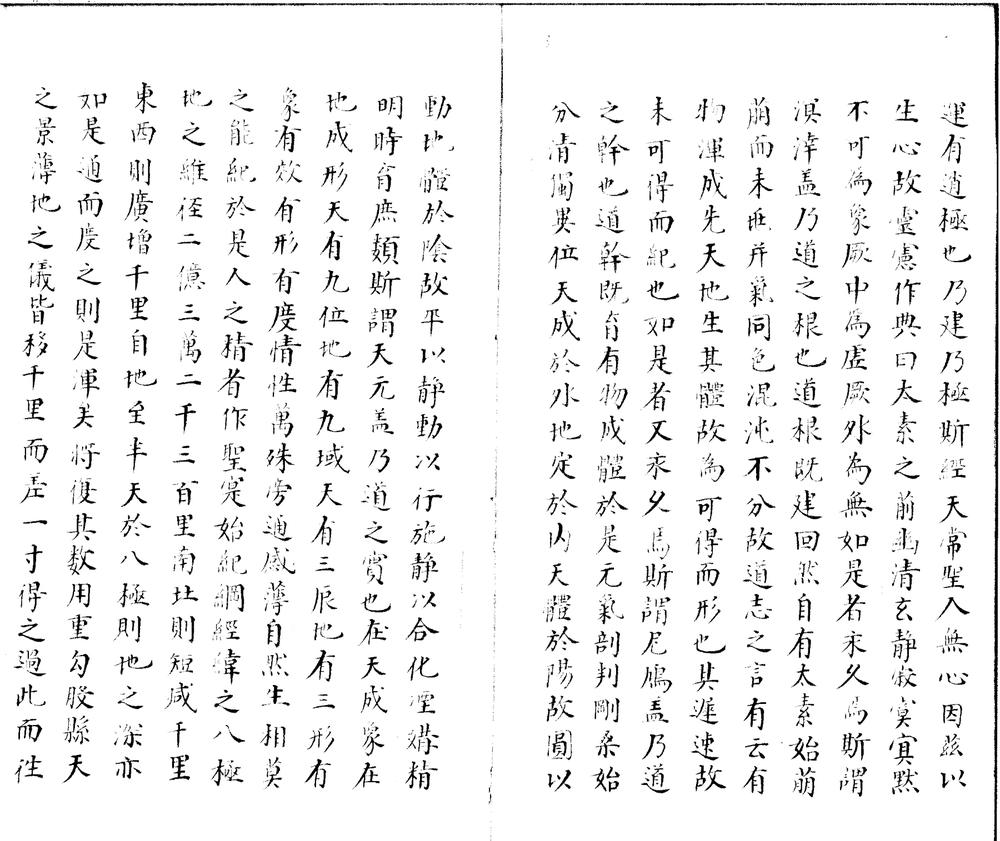 運有道極也乃建乃極斯經天常聖人無心因茲以
生心故靈憲作典曰太素之前幽清玄静寂寞㝠黙
不可為象厥中為虚厥外為無如是者永久焉斯謂
溟涬盖乃道之根也道根既建回然自有太素始萠
萠而未兆并氣同色混沌不分故道志之言有云有
物渾成先天地生其體故為可得而形也其遲速故
未可得而紀也如是者又永久焉斯謂厖鴻盖乃道
之幹也道幹既育有物成體於是元氣剖判剛柔始
分清濁異位天成於外地定於內天體於陽故圓以
動地體於陰故平以静動以行施静以合化堙媾精
明時育庶類斯謂天元盖乃道之實也在天成象在
地成形天有九位地有九域天有三辰地有三形有
象有效有形有度情性萬殊旁通感薄自然生相莫
之能紀於是人之精者作聖寔始紀綱經緯之八極
地之維徑二億三萬二千三百里南北則短减千里
東西則廣增千里自地至半天於八極則地之深亦
如是通而度之則是渾矣將復其数用重勾股縣天
之景薄地之儀皆移千里而差一寸得之過此而往